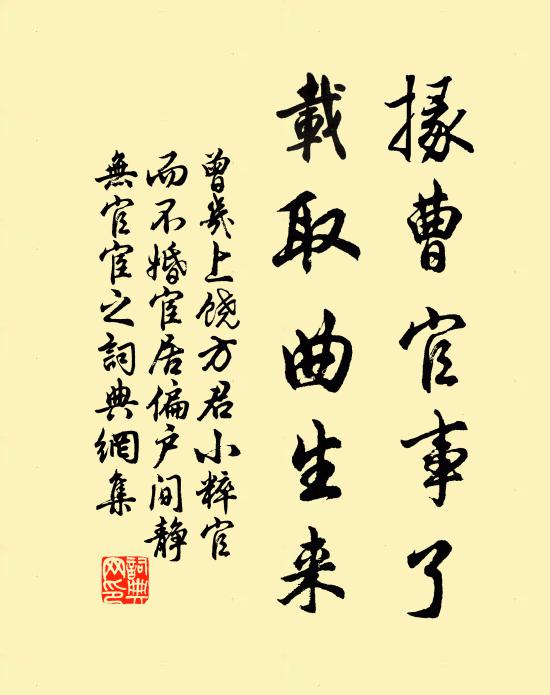 掾曹官事了
載取曲生来
曾幾上饶方君小粹官
而不婚宦居偏户间静
無官宦之詞典網集
詞典网印